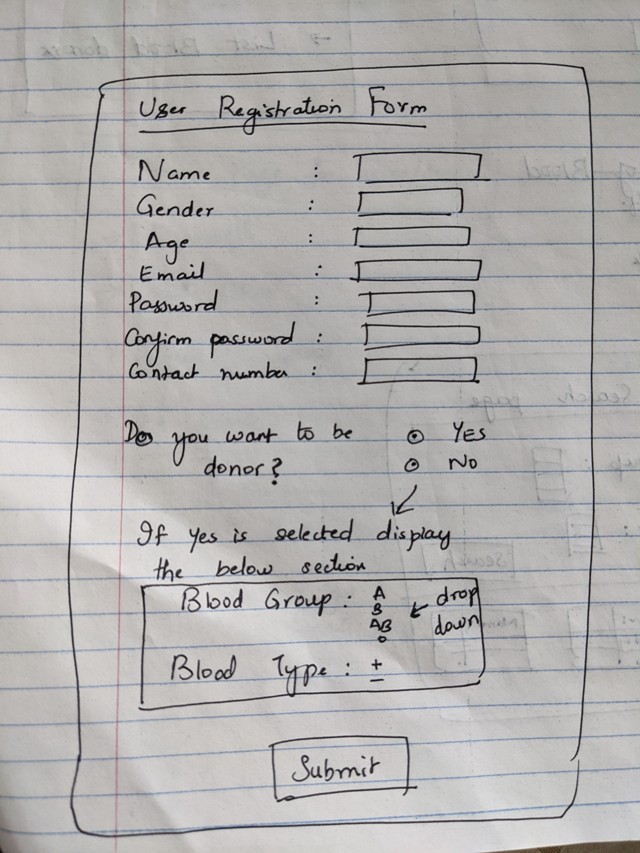 User Registration Form
Name :
Gender :
Age :
Email :
Password :
Confirm password :
Contact number :
Do you want to be donor?
YES
NO
If Yes is selected display
the below section
Blood Group : A
B
AB
O
drop down
Blood Type : +
-
Submit
→ List Blood donors
Blood
Search page
Search